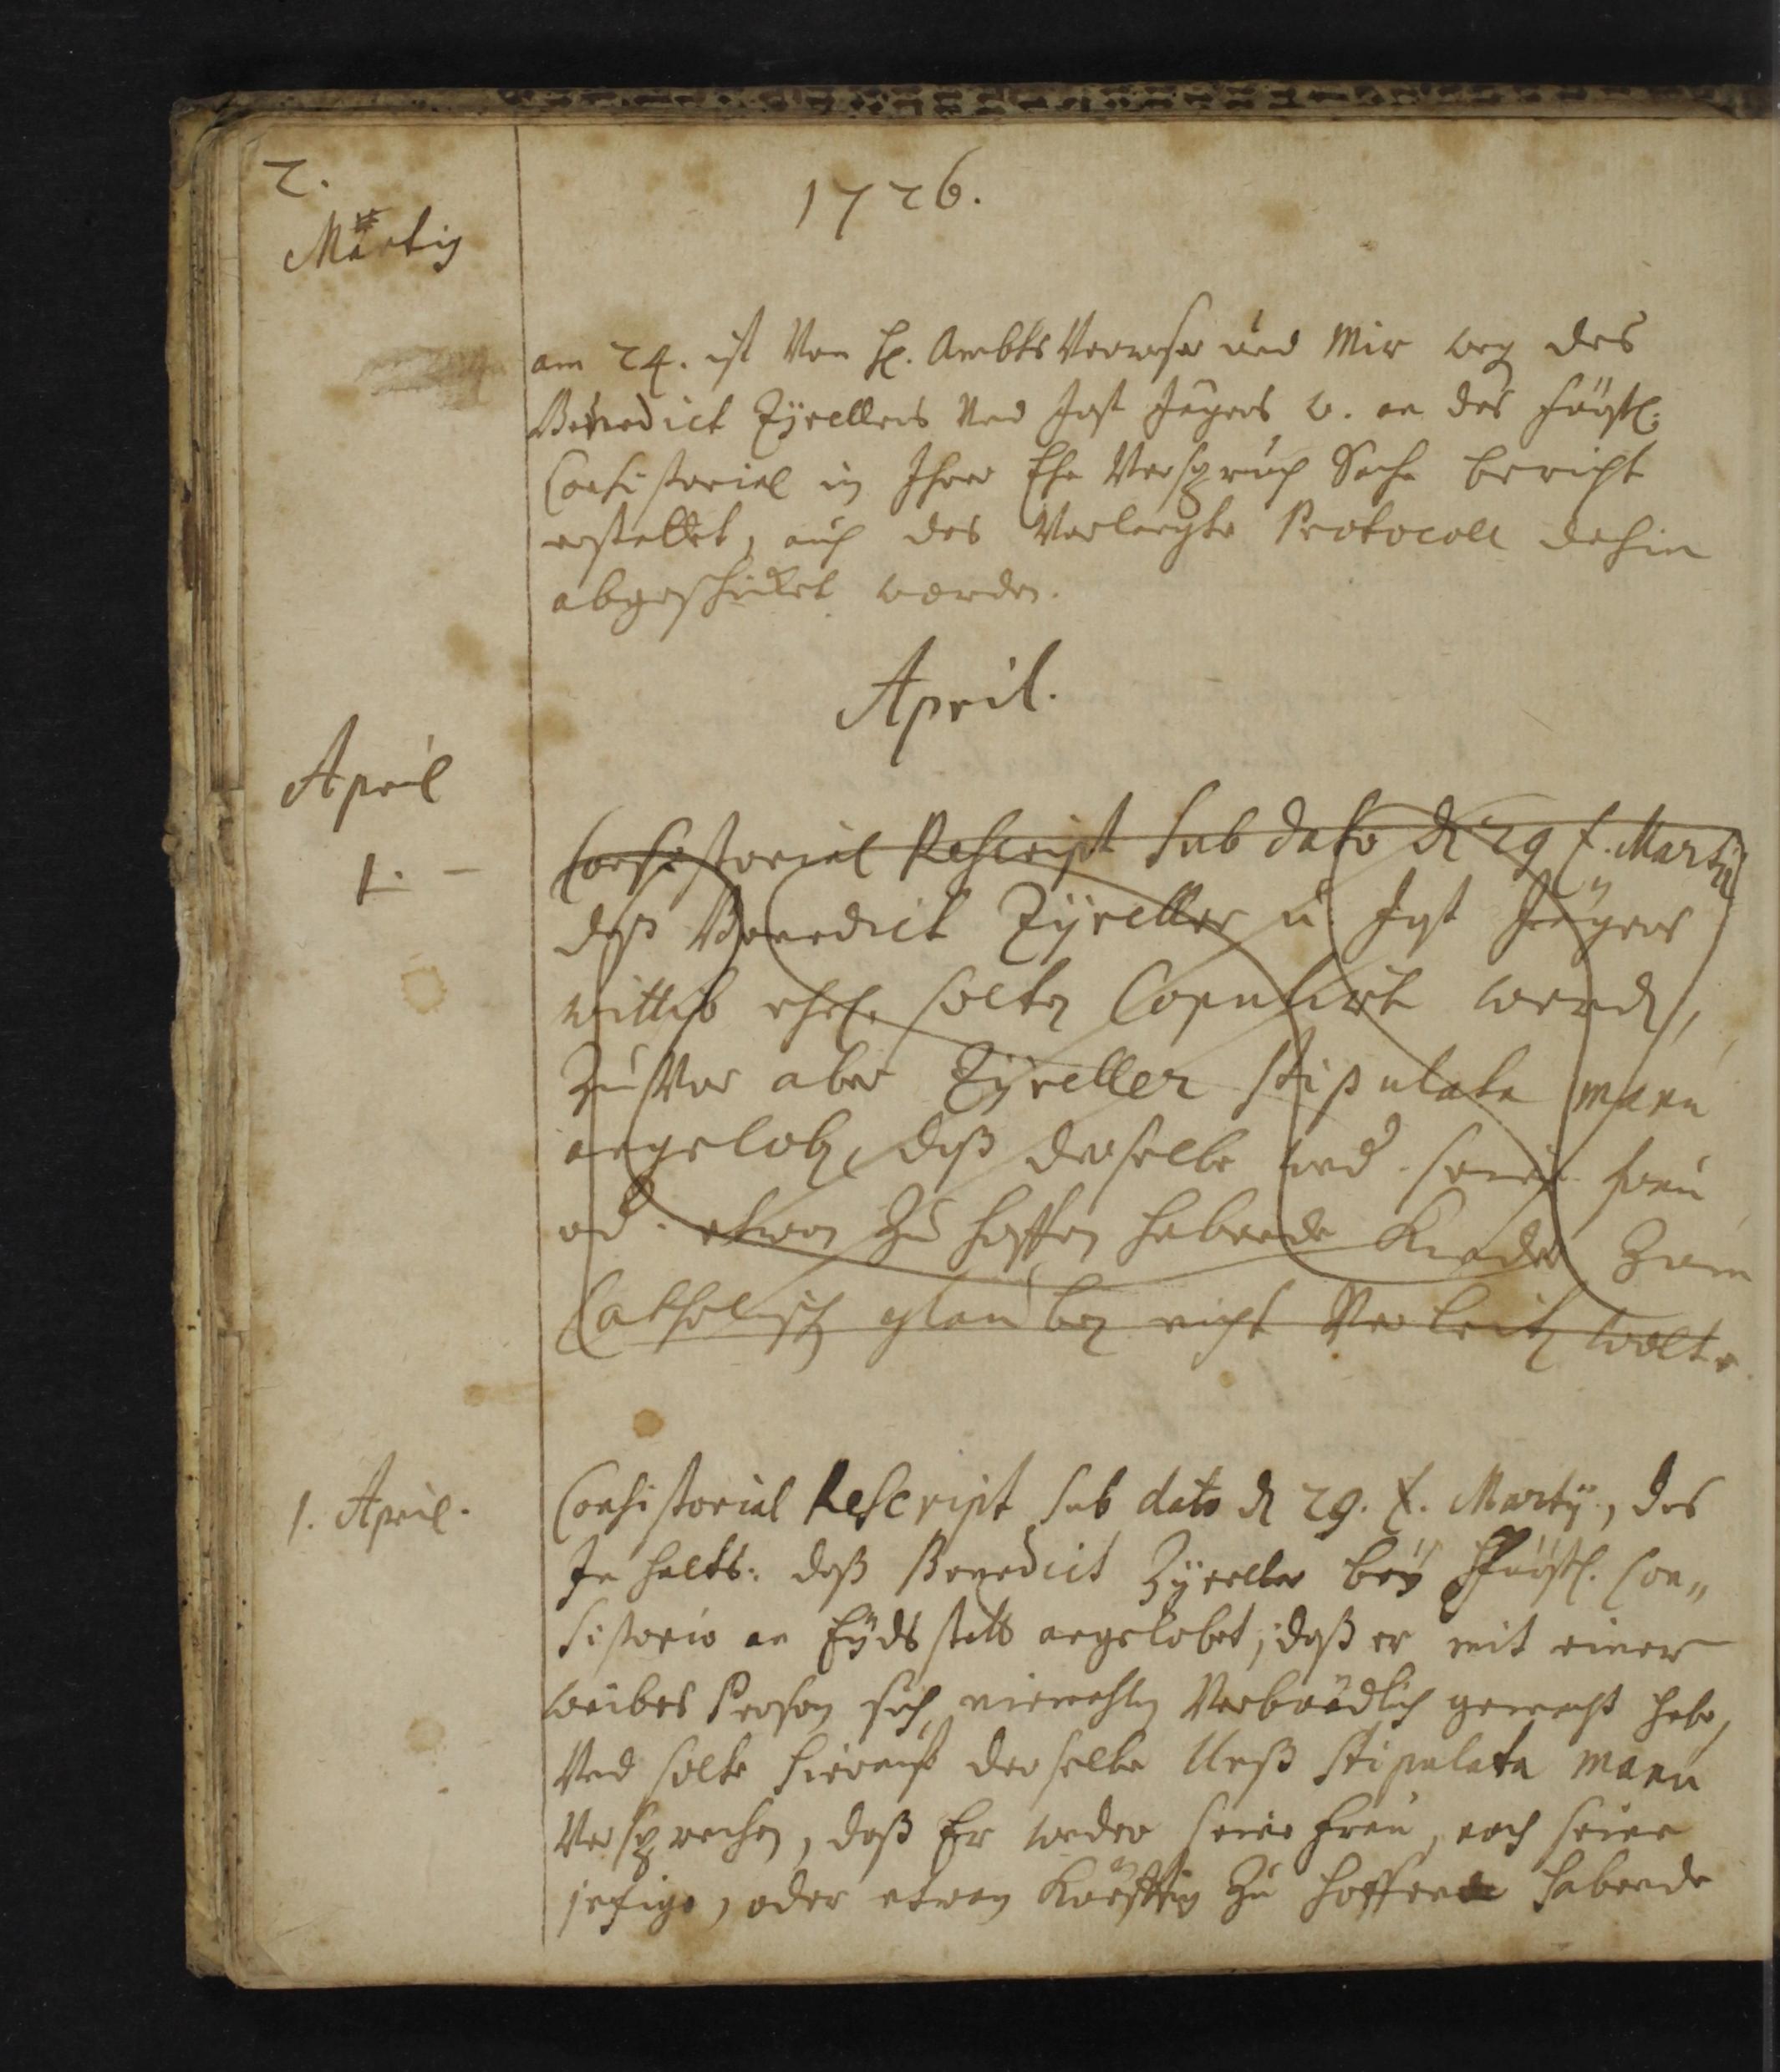 2.
1726.
Märtij
am 24. ist Von H. Ambts Verweser und Mir weg des
Benedict Zÿrellers Und Jost Jägers W. an das fürstl.
Consistorial in Ihrer Ehe Verspruch Sache bericht
erstattet, auch das Verlangte Protocoll dahin
abgeschicket worden.
April.
April
1. -
Consistorial Rescript Sub dato d 29 t. Martÿ
daß Benedict Zÿreller u. Jost Jägers
wittib ehel. solten Copulirt werden,
Zu Vor aber Zÿreller stipulata manu
angeloben, daß derselbe und seine frau
od. etwan Zu hoffen habende Kinder Zum
Catholischen glauben nicht Verleiten wolte.
1. April.
Consistorial Rescript sub dato d 29. t. Martÿ, des
Inhalts: daß Benedict Zÿreller beÿ Fürstl. Con„
sistorio an Eÿds statt angelobet, daß er mit einer
weibes Person sich niemahlen Verbündlich gemacht habe,
Und solte hierauf derselbe Unß stipulata manu
Versprechen, daß Er weder seine frau, noch seine
jetzige, oder etwan Künfftig Zu hoffen habende